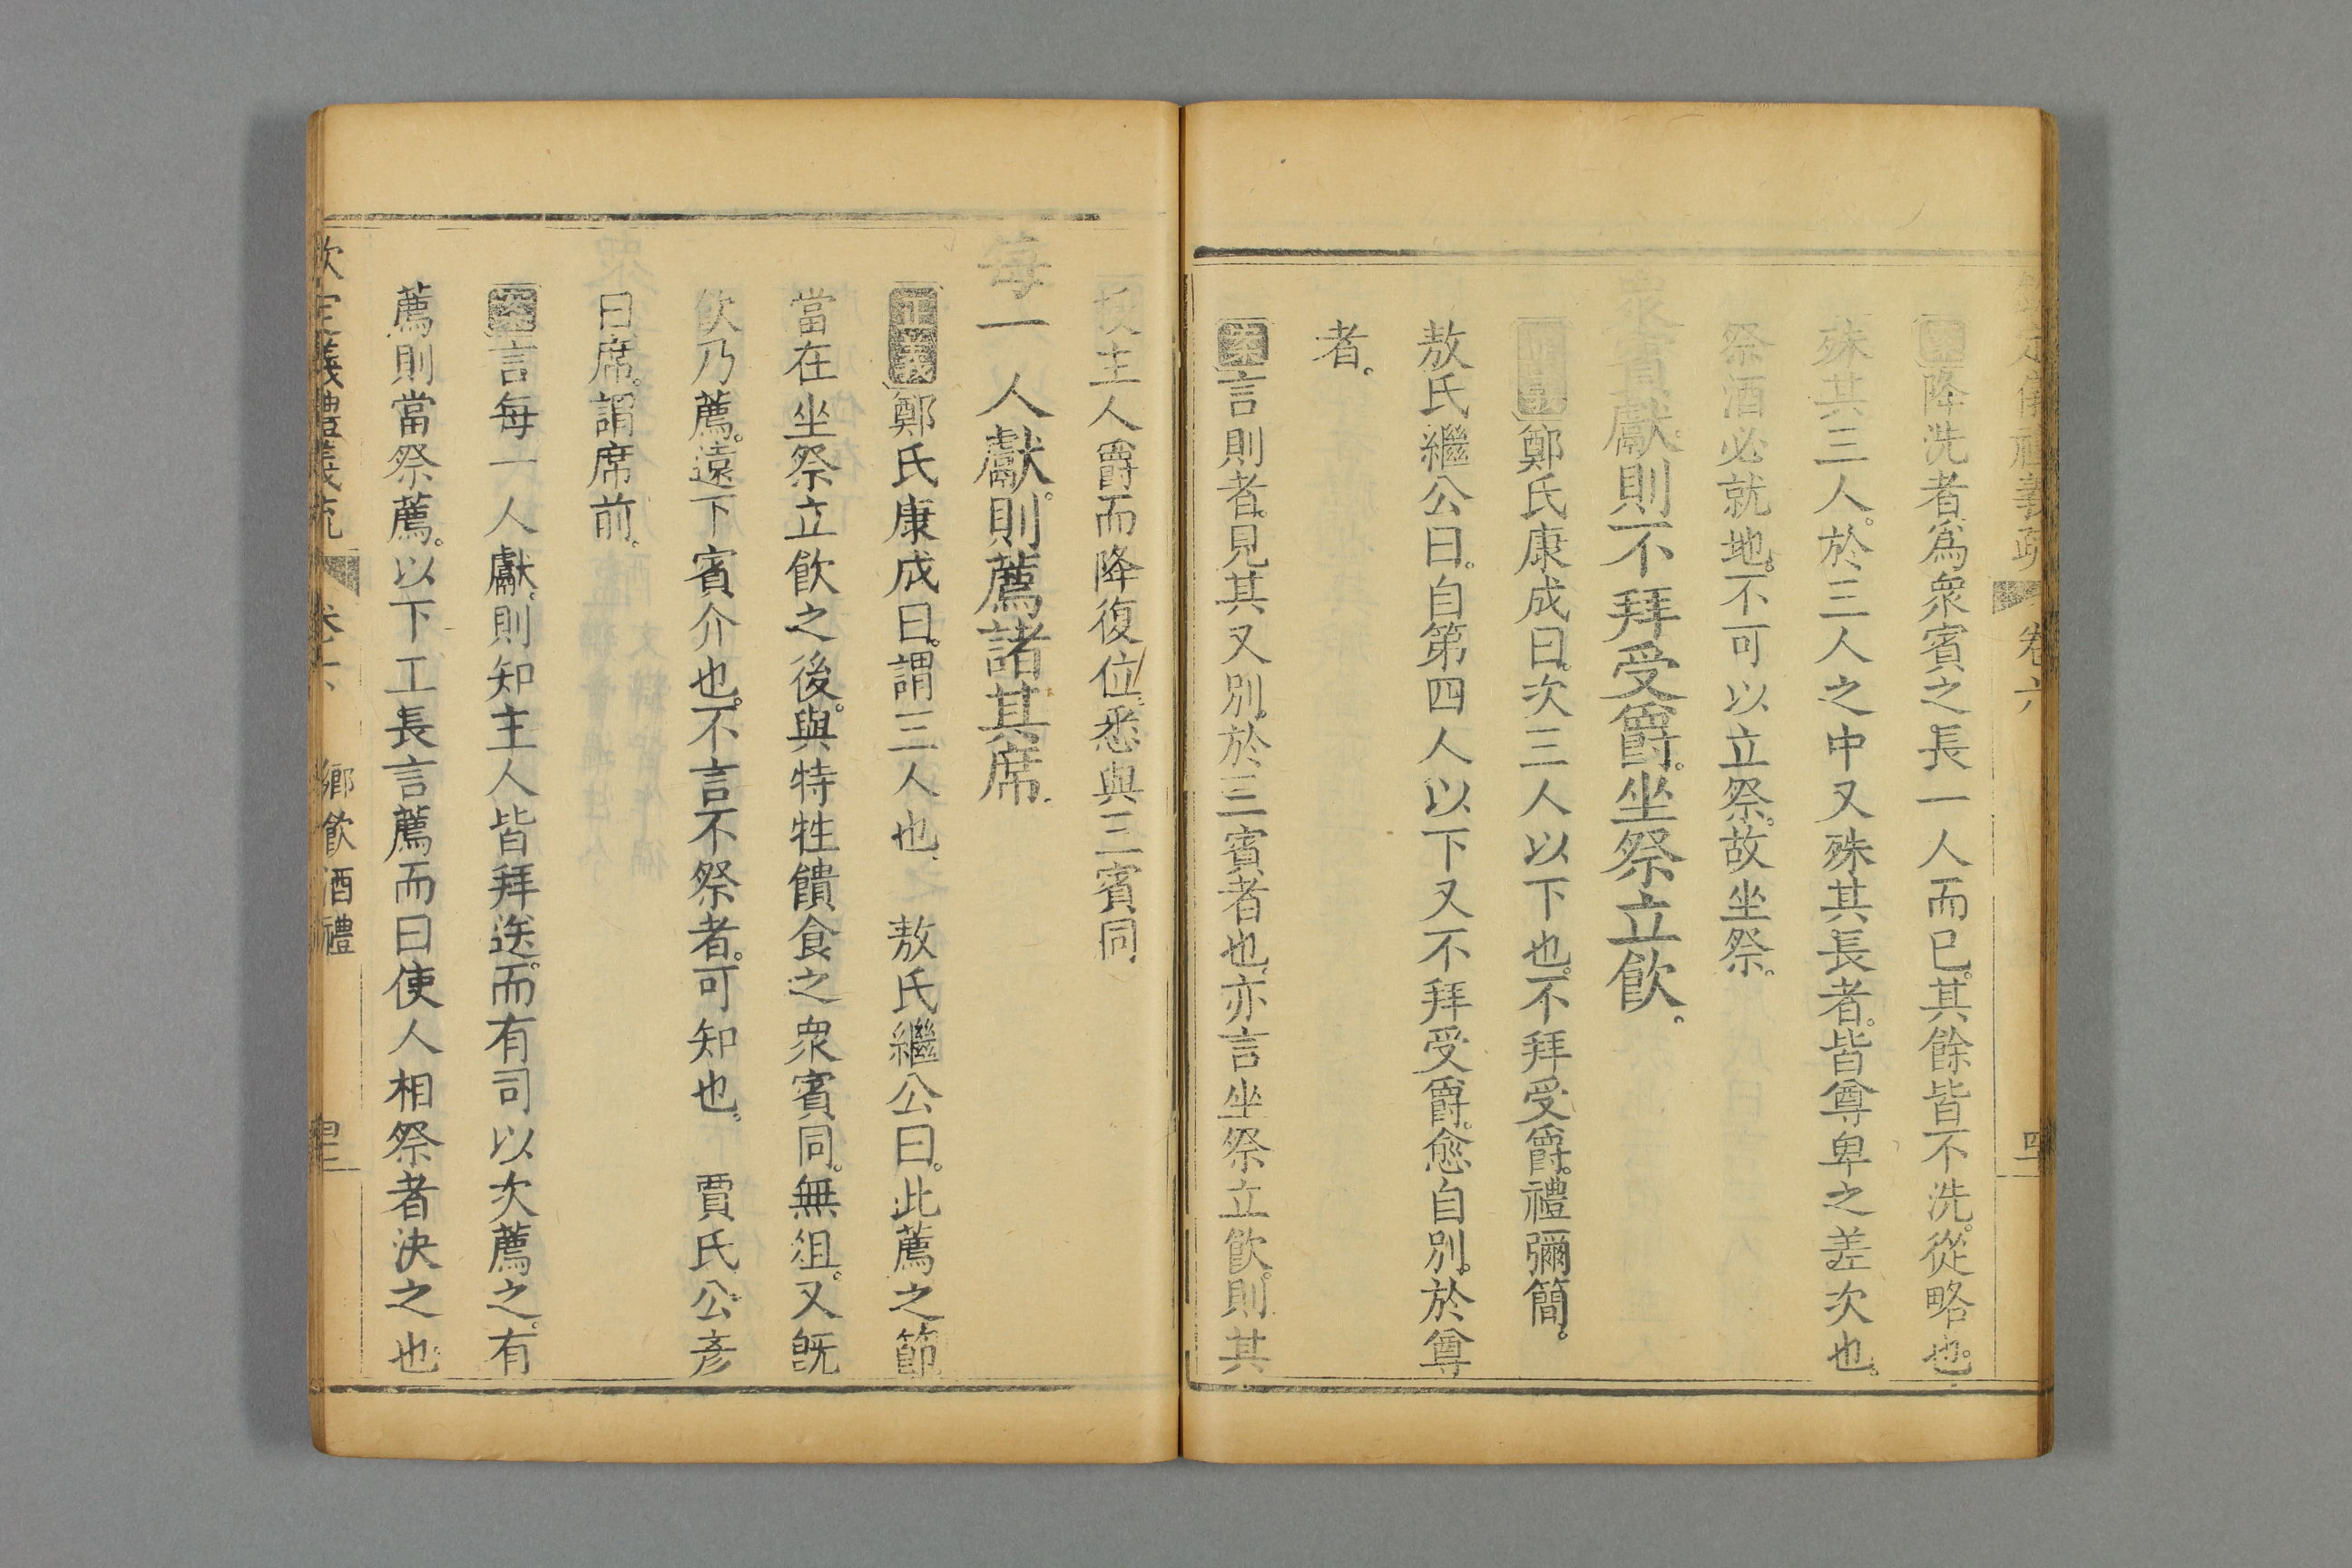 欽定儀禮義疏 卷六 四
案降洗者爲衆賓之長一人而已。其餘皆不洗。從略也。
殊其三人。於三人之中又殊其長者。皆尊卑之差次也。
祭酒必就地。不可以立祭。故坐祭。
衆賓獻則不拜受爵。坐祭立飮。
正義鄭氏康成曰。次三人以下也。不拜受爵。禮彌簡。
敖氏繼公曰。自第四人以下又不拜受爵。愈自別。於尊
者。
案言則者。見其又別。於三賓者也。亦言坐祭立飮。則其
授主人爵而降復位。悉與三賓同
每一人獻。則薦諸其席。
正義鄭氏康成曰。謂三人也。 敖氏繼公曰。此薦之節
當在坐祭立飮之後。與特牲饋食之衆賓同。無俎。又旣
飮乃薦。遠下賓介也。不言不祭者。可知也。 賈氏公彥
曰席。謂席前。
案言每一人獻。則知主人皆拜送。而有司以次薦之。有
薦則當祭薦。以下工長言薦而曰使人相祭者決之也
欽定儀禮義疏 卷六 鄉飮酒禮